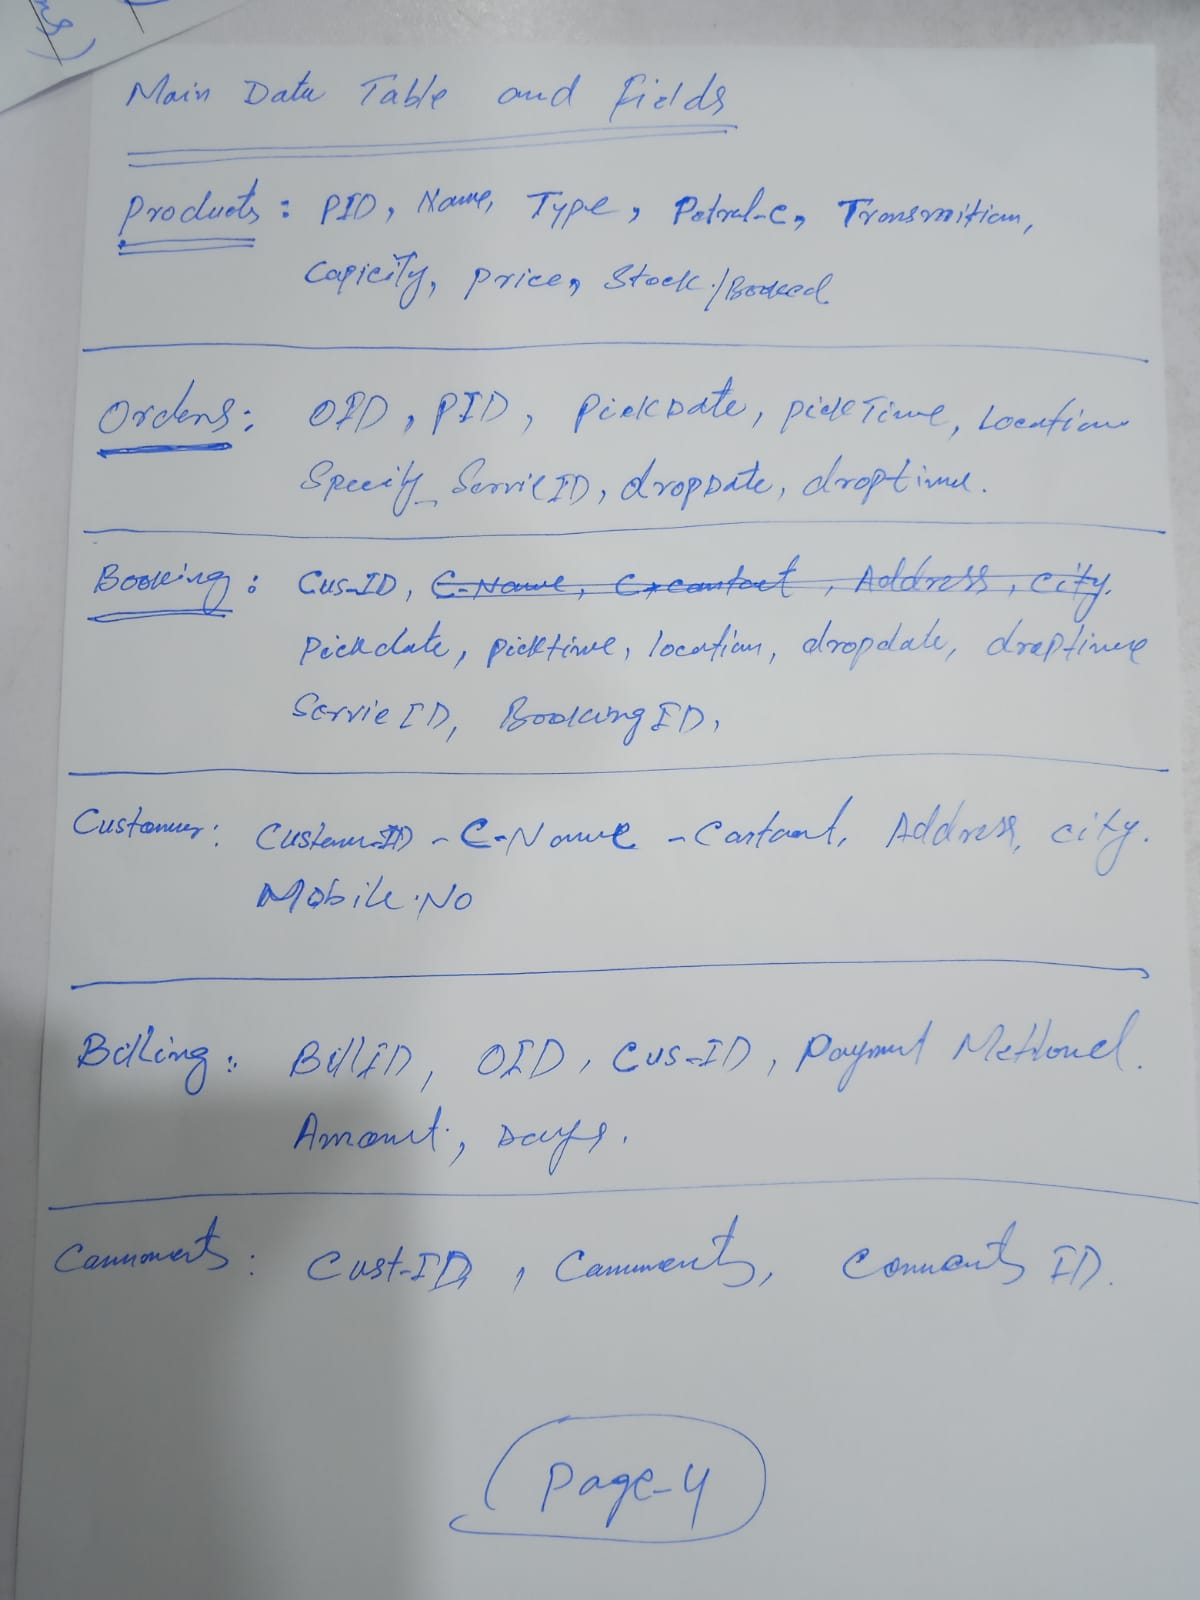 ns)
Main Data Table and fields
Products : PID, Name, Type, Petrol-C, Transmition,
Capicity, price, Stock/Booked
Orders: OID, PID, PickDate, pickTime, Location
Specify_ServieID, dropDate, droptime.
Booking : Cus-ID, C-Name, C-contact, Address, city.
Pickdate, picktime, location, dropdate, droptime
ServieID, BookingID,
Customer: Customer-ID - C-Name - Contact, Address, city.
Mobile.No
Billing : BillID, OID, Cus-ID, Payment Method.
Amount, Days.
Comments : Cust-ID, Comments, Comments ID.
Page-4